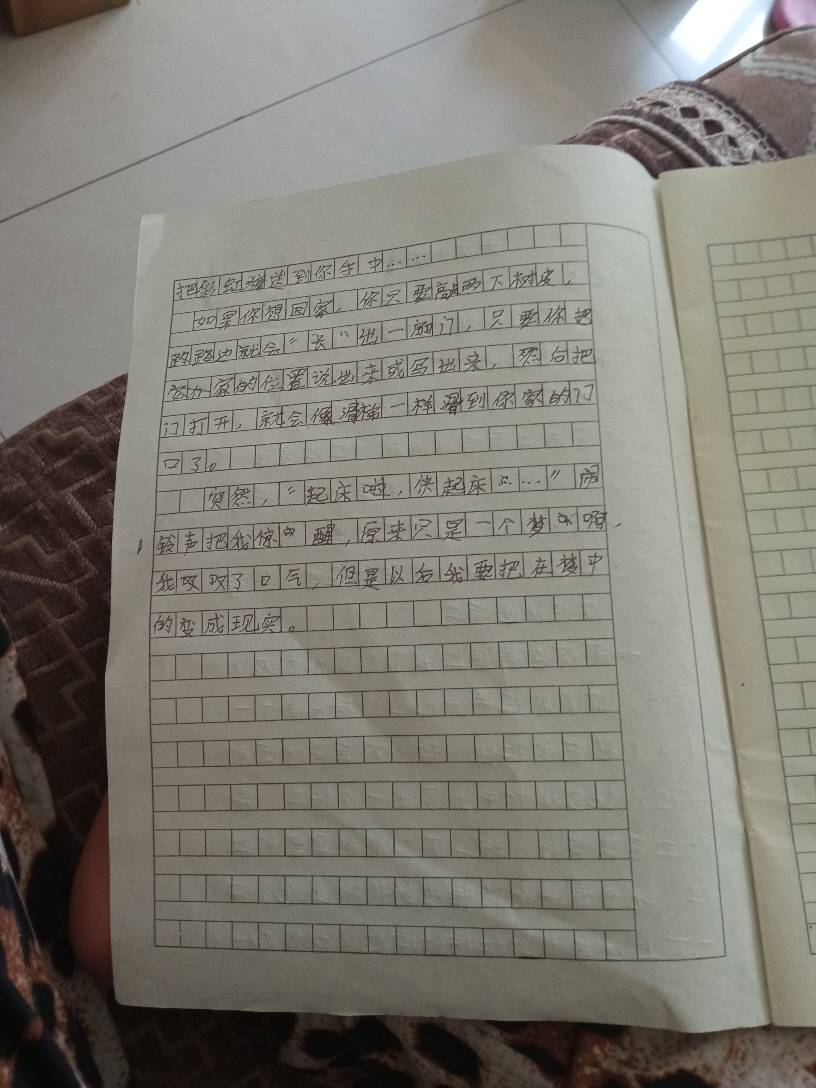 把彩虹递送到你手中……
如果你想回家，你只要敲两下树皮，
路边就会“长”出一扇门，只要你把
家的位置说出来或写出来，然后把
门打开，就会像滑梯一样滑到你家的门
口了。
突然，“起床啦，快起床……”闹
铃声把我惊醒，原来只是一个梦啊，
我叹了口气，但是以后我要把在梦中
的变成现实。